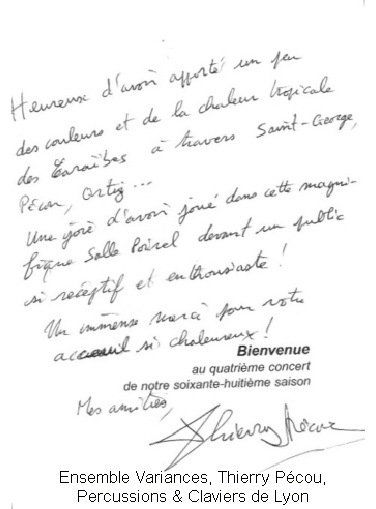 Heureux d'avoir apporté un peu
des couleurs et de la chaleur tropicale
des Caraïbes à travers Saint-George,
Pécou, Ortiz...
Une joie d'avoir joué dans cette magni-
fique Salle Poirel devant un public
si réceptif et enthousiaste !
Un immense merci pour votre
accueil si chaleureux !
Bienvenue
au quatrième concert
de notre soixante-huitième saison
Mes amitiés,
Thierry Pécou
Ensemble Variances, Thierry Pécou,
Percussions & Claviers de Lyon